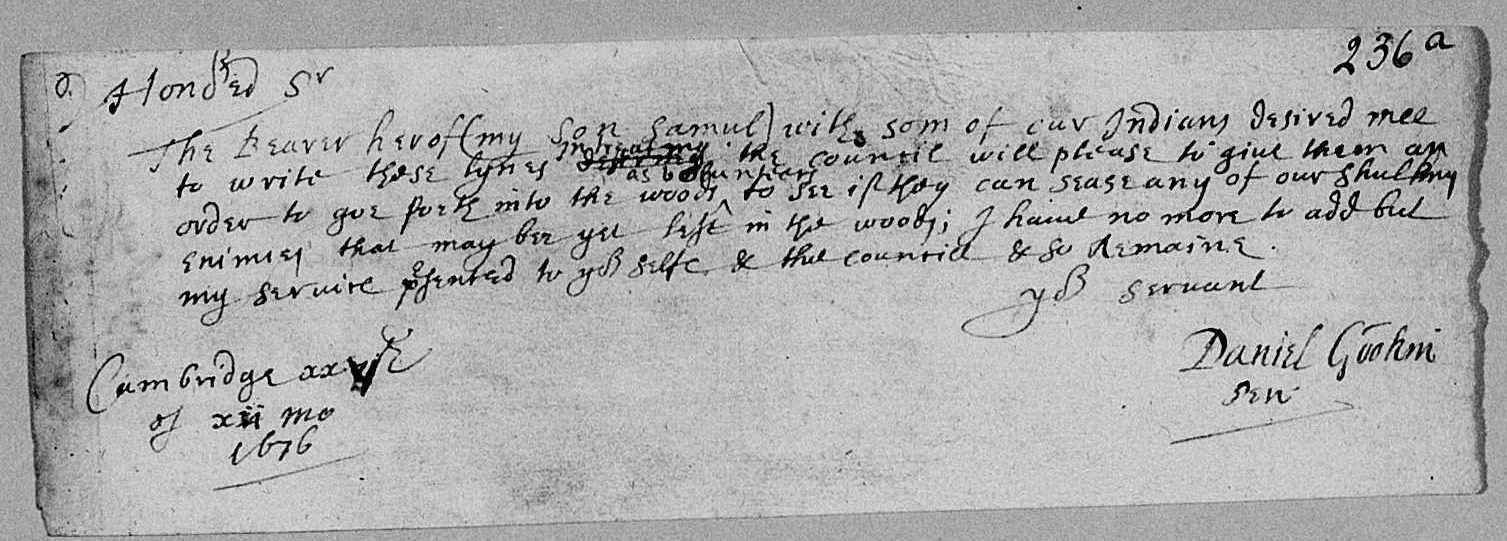 236a
Honored Sr
The Bearer herof (my Son Samul) with som of our Indians desired mee
to write these lynes intreating the council will please to give them an
order to goe forth into the woods as voluntiers to see if they can sease any of our skulking
enimies that may bee yet left in the woods; I have no more to add but
my service presented to yor selfe & the councill & so Remaine.
yor servant
Daniel Gookin
Senr
Cambridge
of xii mo
1676